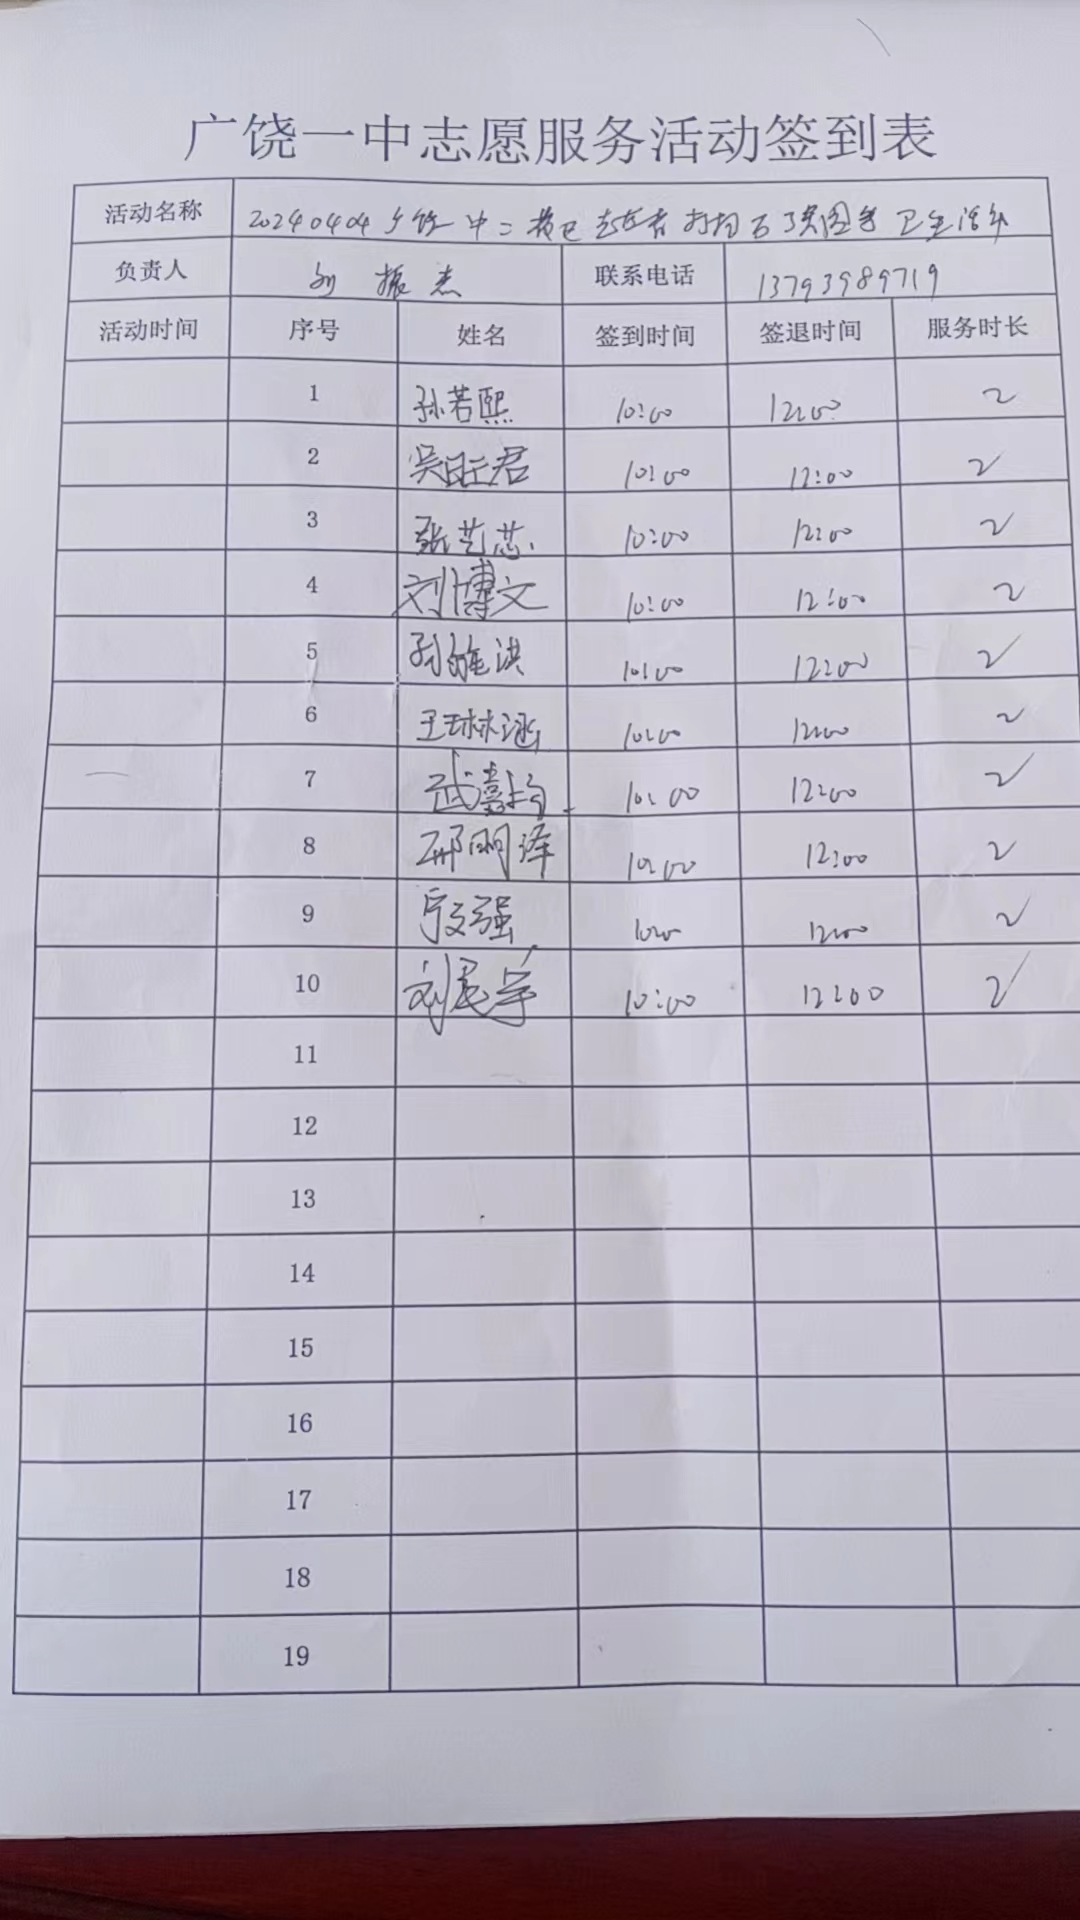 广饶一中志愿服务活动签到表
活动名称 20240404广饶一中二校区志愿者打扫 卫生活动
负责人 刘振杰 联系电话 13793989719
活动时间 序号 姓名 签到时间 签退时间 服务时长
1 孙若熙 10:00 12:00 2
2 吴旺君 10:00 12:00 2
3 张艺芯 10:00 12:00 2
4 刘博文 10:00 12:00 2
5 洪 10:00 12:00 2
6 王琳涵 10:00 12:00 2
7 武嘉 10:00 12:00 2
8 邢明泽 10:00 12:00 2
9 强 10:00 12:00 2
10 刘 10:00 12:00 2
11
12
13
14
15
16
17
18
19